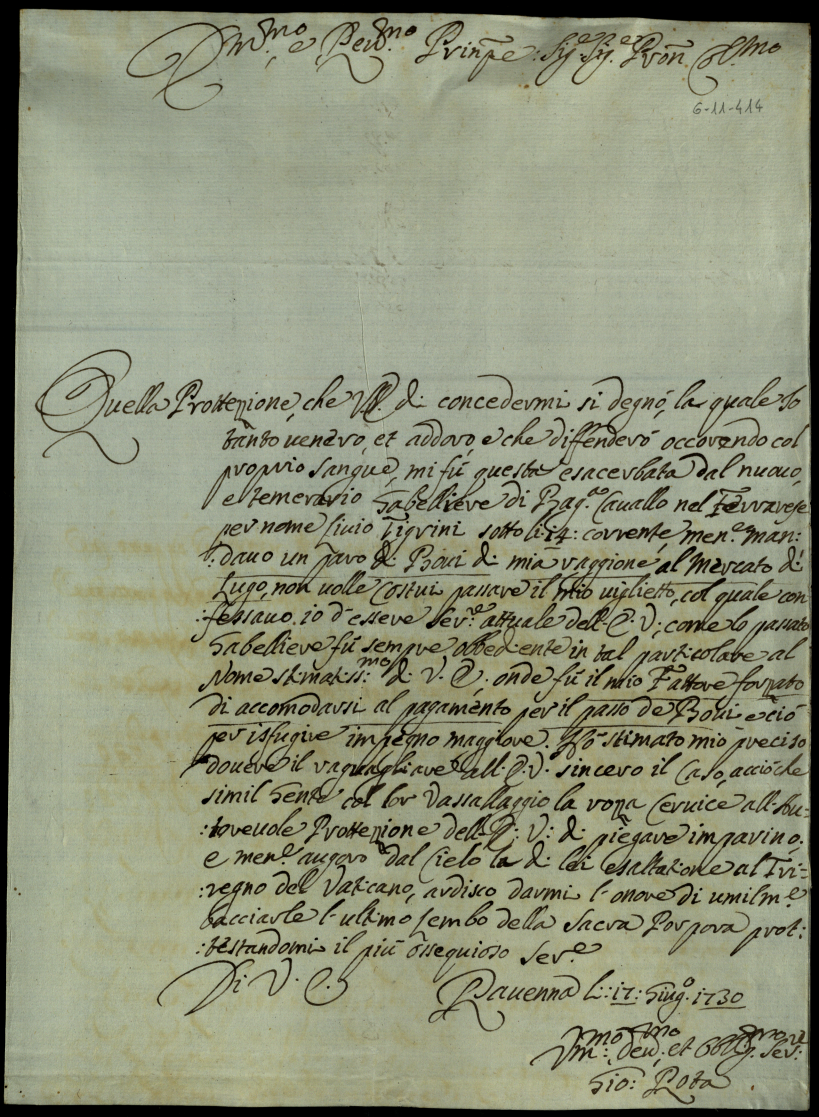 Em.mo e Rev.mo Prin̄pe: Sig.e Sig.e Pron̄ Col.mo
6-11-414
Quella Prottezione, che V.E. di concedermi si degnó, la quale Io
tanto venero, et addoro, e che diffenderó occorendo col
proprio sangue, mi fú questa esacerbata dal nuovo,
e temerario Gabelliere di Bag.o Cavallo nel Ferrarese
per nome Livio Tigrini sotto li: 14: corrente, men.e man:
:davo un paro di Bovi di mia raggione al Mercato di
Lugo, non volle Costui passare il mio viglietto, col quale con
:fessavo io d'essere Ser.e attuale dell'E. V:, come lo passato
Gabelliere fú sempre obbediente in tal particolare al
Nome stimatiss:mo di V. E:, onde fú il mio Fattore forzato
di accomodarsi al pagamento per il passo de Bovi e ció
per isfugire impegno maggiore. Hó stimato mio preciso
dovere il raguagliare all'E. V. sincero il Caso, acció che
simil Gente col lor Vassallaggio la rozza Cervice all'Au:
:torevole Prottezione dell'E: V: di piegare imparino.
e men.e auguro dal Cielo la di lei esaltazione al Tri:
:regno del Vaticano, ardisco darmi l'onore di umilm.e
bacciarle l'ultimo lembo della Sacra Porpora prot:
:testandomi il più ossequioso Ser.e
Di V. E.
Ravenna li: 17: Giug.o 1730
Um:mo, dev:mo, et Obblig.mo Ser:e
Gio: Rota